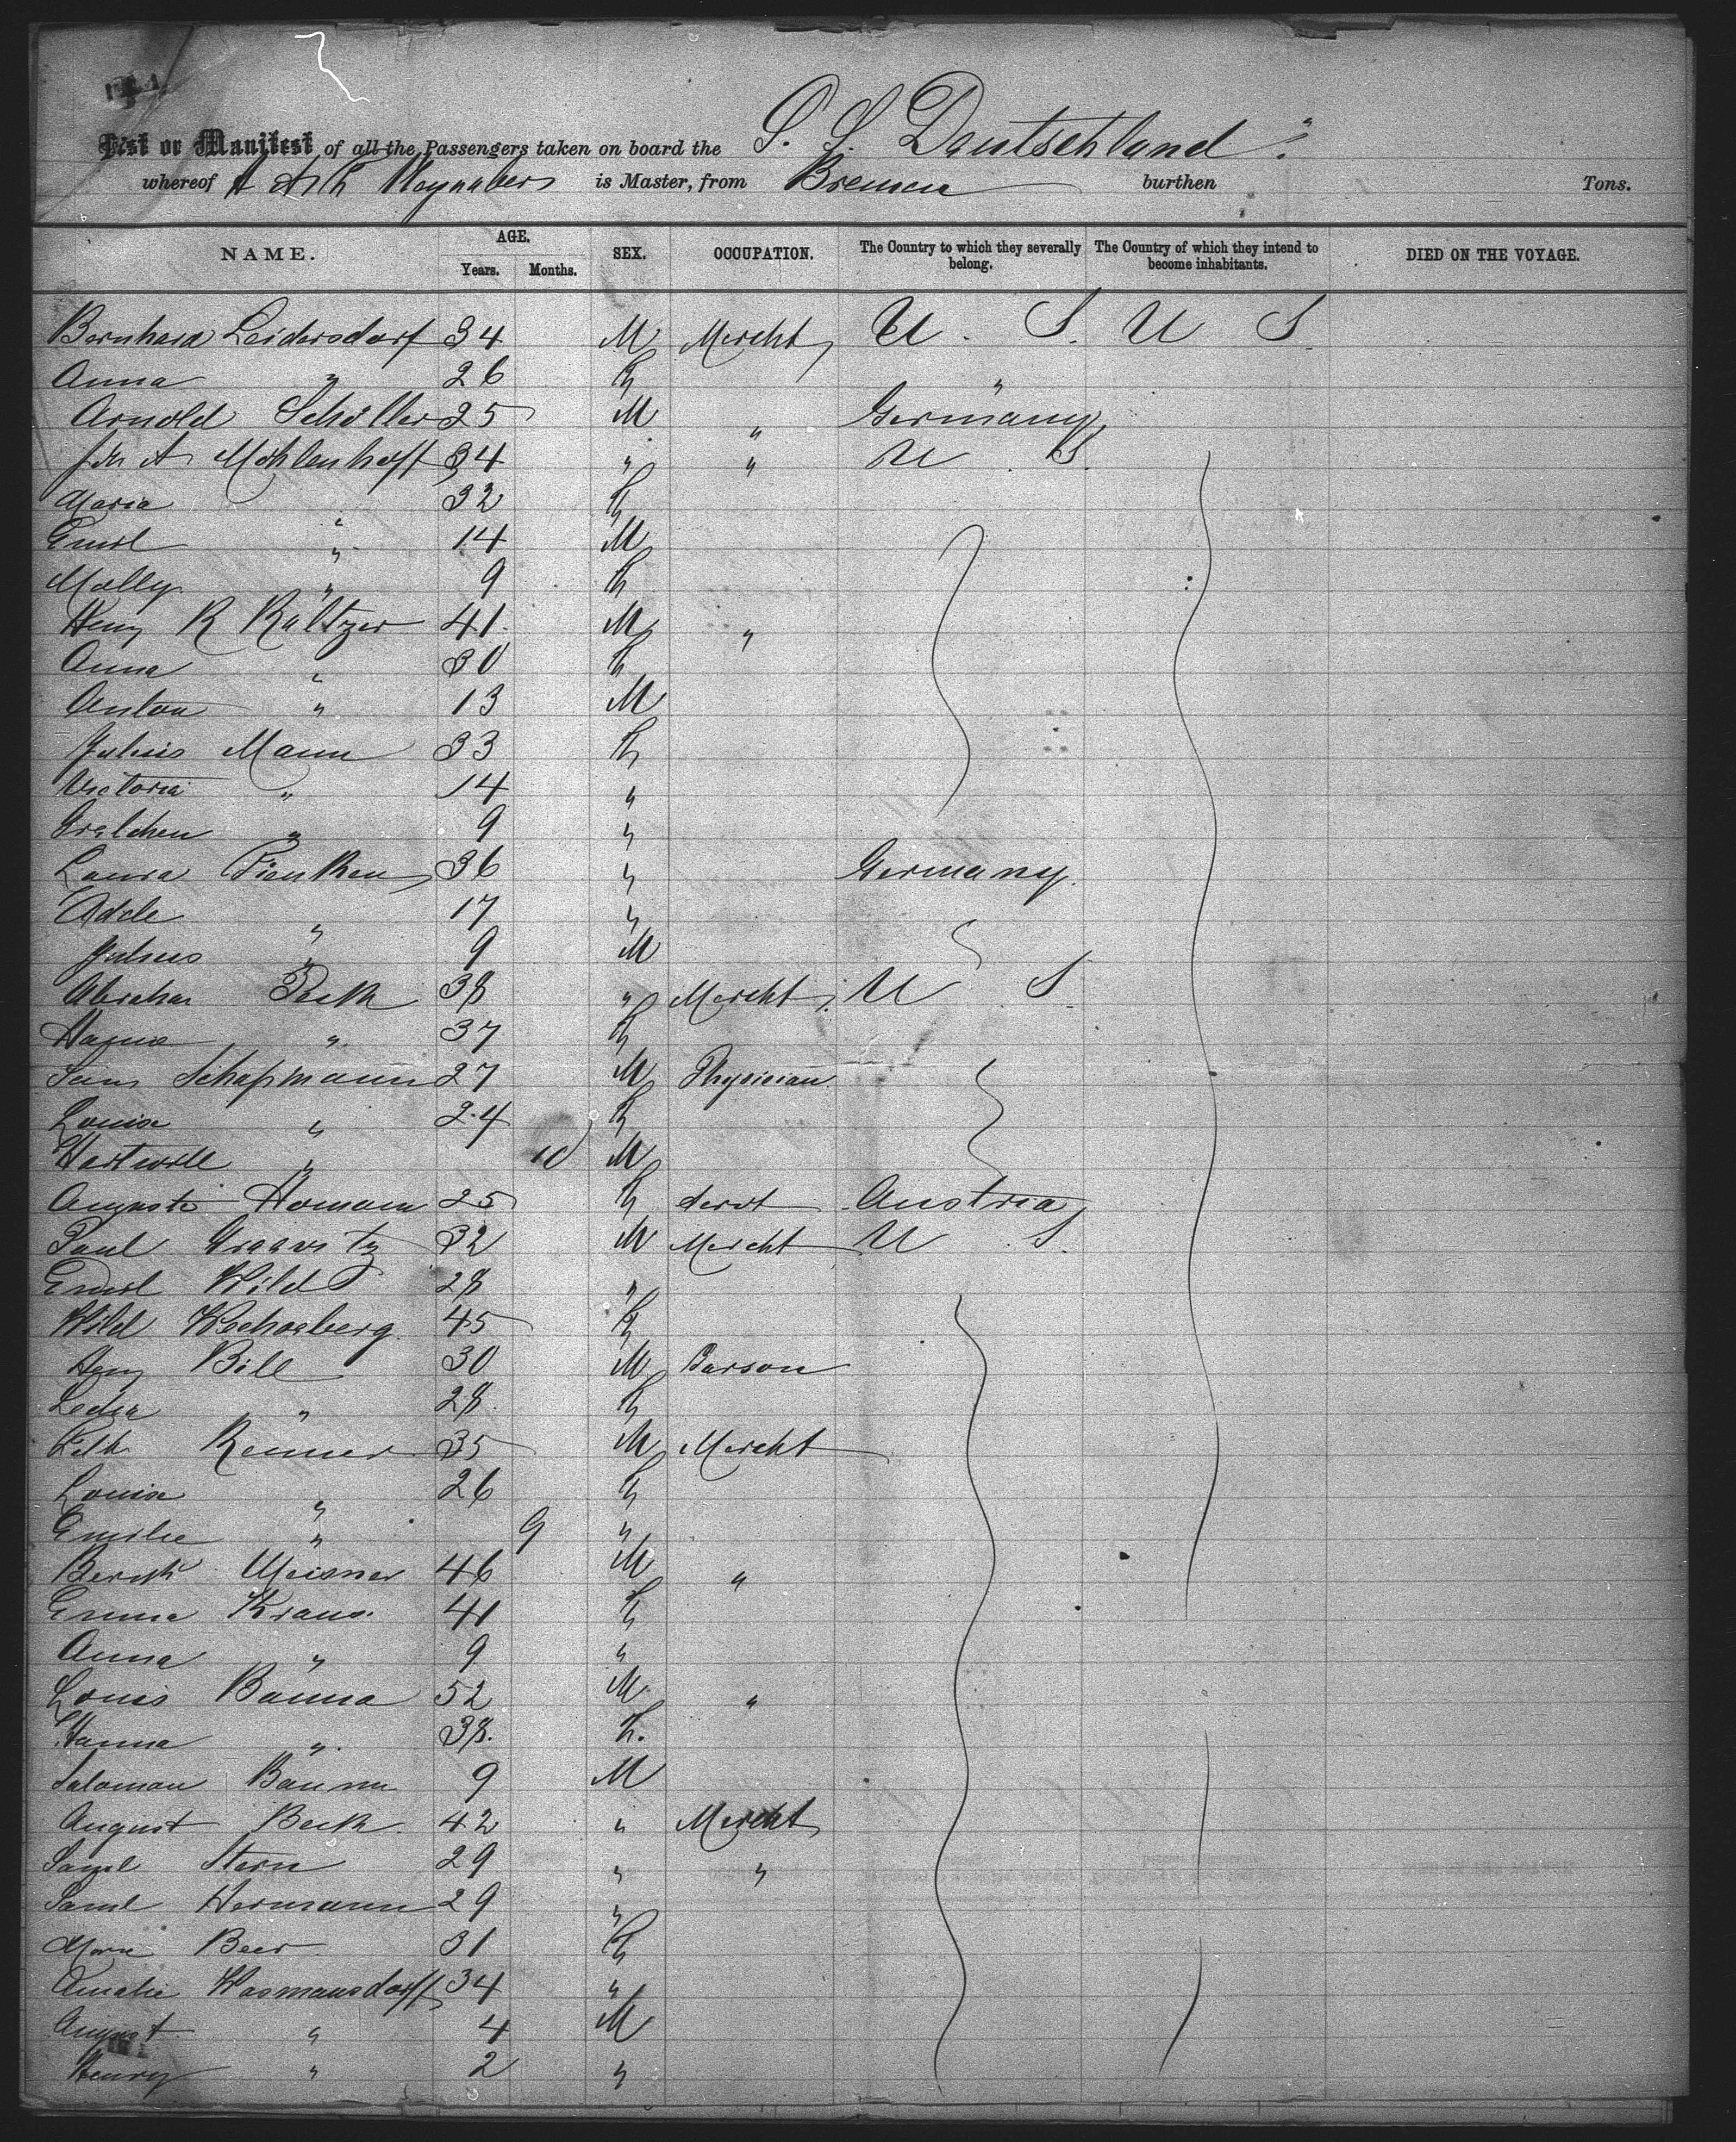 List or Manifest of all the Passengers taken on board the S. S. Deutschland
whereof is Master, from Bremen burthen Tons.
NAME. AGE. Years. Months. SEX. OCCUPATION. The Country to which they severally belong. The Country of which they intend to become inhabitants. DIED ON THE VOYAGE.
Bernhard Leidersdorf 34 M Mercht U. S. U S
Anna " 26 F "
Arnold Schöller 25 M " Germany
Mohlenhoff 34 " " U. S.
Maria " 32 F
Emil " 14 M
Molly " 9 F
Heny R Rältzer 41 M "
Anna " 30 F
Anton " 13 M
Julius Mann 33 F
Victoria " 14 "
Gretchen " 9 "
Laura Tienken 36 " Germany.
Adele " 17 "
Julius " 9 M
Abraham 38 " Mercht U S.
37 F
Schapmann 27 M Physician
Louise " 24 F
" 10 M
Auguste Homann 25 F Servt Austria
Paul 32 M Mercht U S.
Emil Wild 28 "
Wild 45 F
Heny Bill 30 M Parson
" 28 F
Renner 35 M Mercht
Louise " 26 F
Emilie " 9 "
Meisner 46 M "
Emma Kraus 41 F
Anna " 9 "
Louis Bauma 52 M "
Hanna " 38 F.
Saloman 9 M
August Beck 42 " Mercht
Saml Stern 29 " "
Saml Hermann 29 "
Beer 31 F
Amalie Wasmansdorff 34 "
August " 4 M
Henry " 2 "